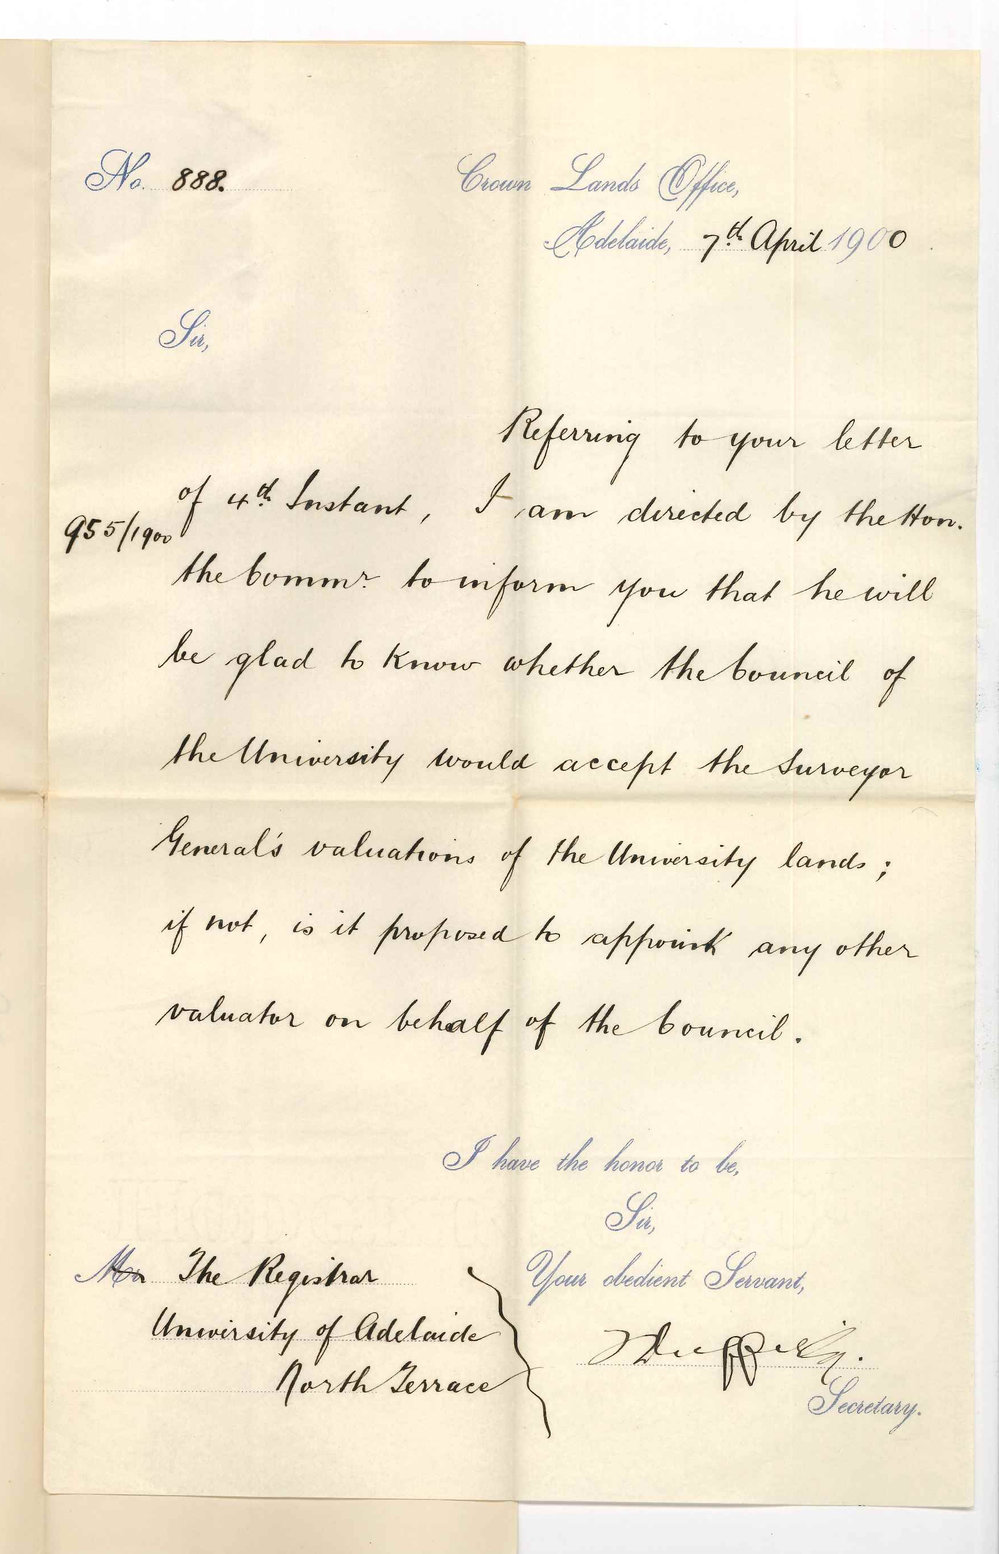 No. 888.
Crown Lands Office,
Adelaide, 7th April 1900
Sir,
Referring to your letter
of 4th Instant, I am directed by the Hon.
955/1900
the Commr to inform you that he will
be glad to know whether the Council of
the University would accept the Surveyor
General's valuations of the University lands;
if not, is it proposed to appoint any other
valuator on behalf of the Council.
I have the honor to be,
Sir,
Your obedient Servant,
The Registrar
University of Adelaide
North Terrace
Secretary.